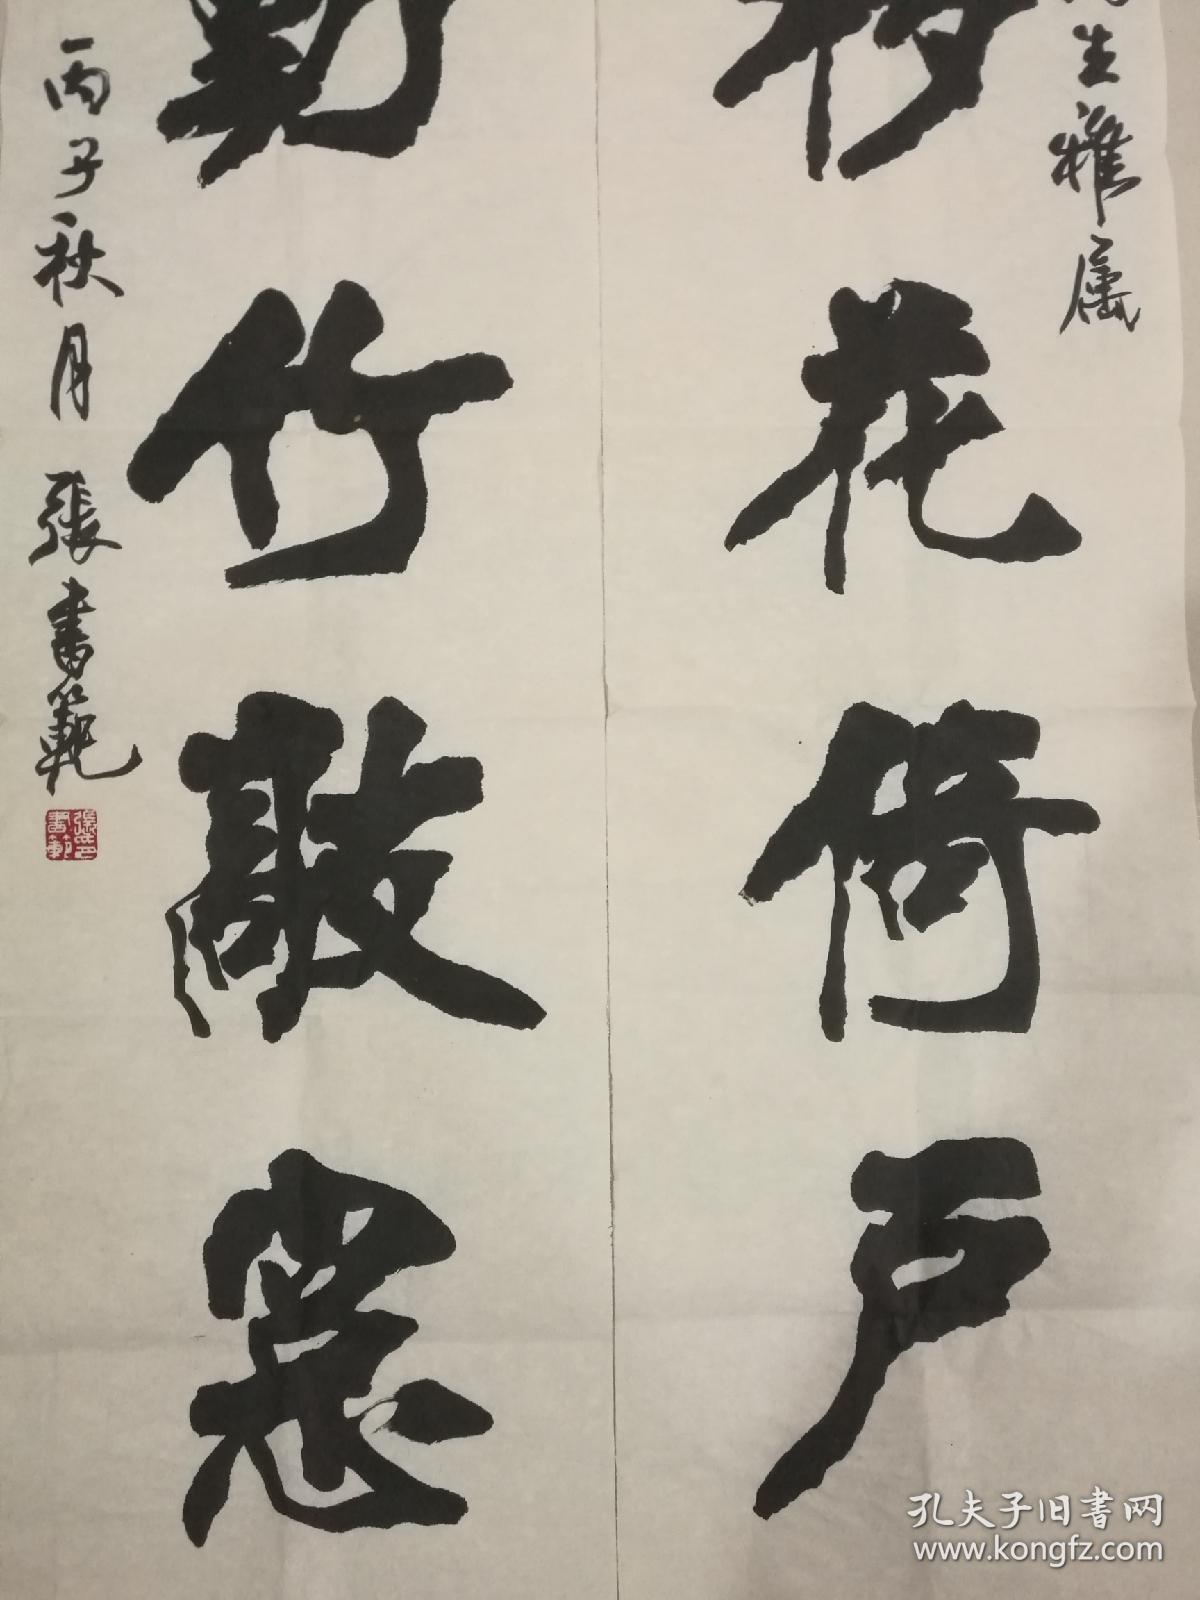 生雅属
移花倚户
動竹敲窓
丙子秋月 張書範
張書範印
孔夫子旧书网
www.kongfz.com